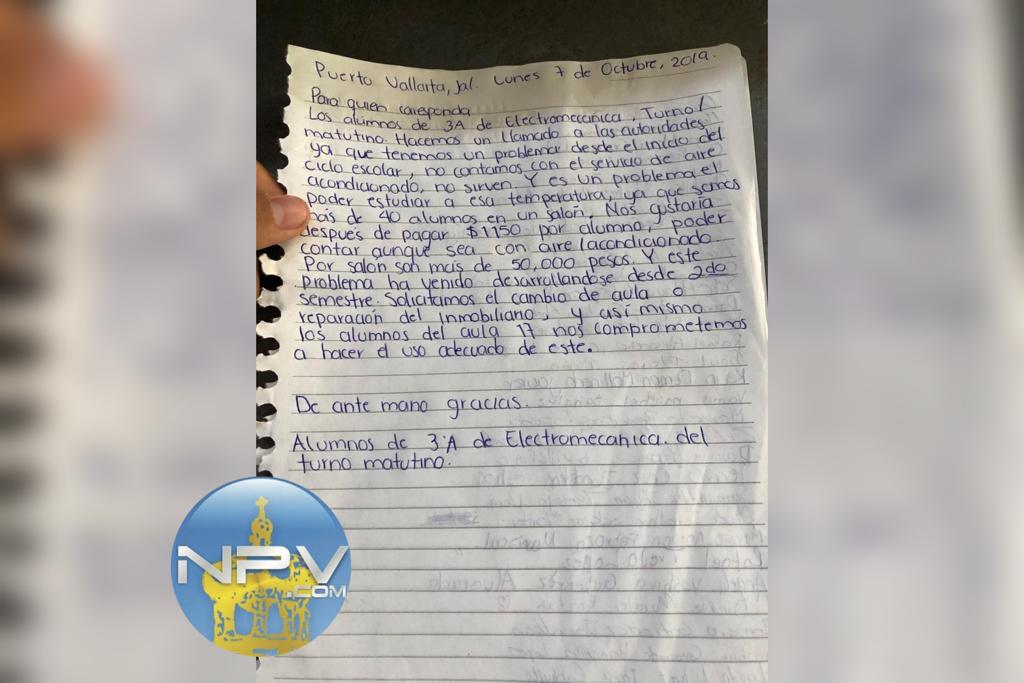 Puerto Vallarta, Jal. Lunes 7 de Octubre, 2019.
Para quien caresponda
Los alumnos de 3A de Electromecánica, Turno/
matutino. Hacemos un llamado a las autoridades
ya que tenemos un problema desde el inicio del
ciclo escolar, no contamos con el servicio de aire
acondicionado, no sirven. Y es un problema el
poder estudiar a esa temperatura, ya que somos
más de 40 alumnos en un salón. Nos gustaría
después de pagar $1150 por alumno, poder
contar aunque sea con aire/acondicionado.
Por salón son mais de 50,000 pesos. Y este
problema ha venido desarrollandose desde 2do
semestre. Solicitamos el cambio de aula o
reparación del Inmobiliano, y así mismo
los alumnos del aula 17 nos comprometemos
a hacer el uso adecuado de este.
De ante mano gracias.
Alumnos de 3°A de Electromecanica. del
turno matutino.
NPV
.COM